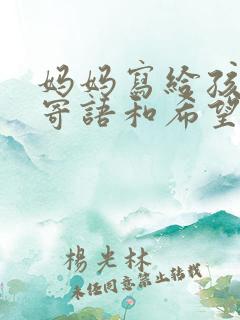 妈妈寫給孩
寄語和希望
楊光林
未经同意禁止转载